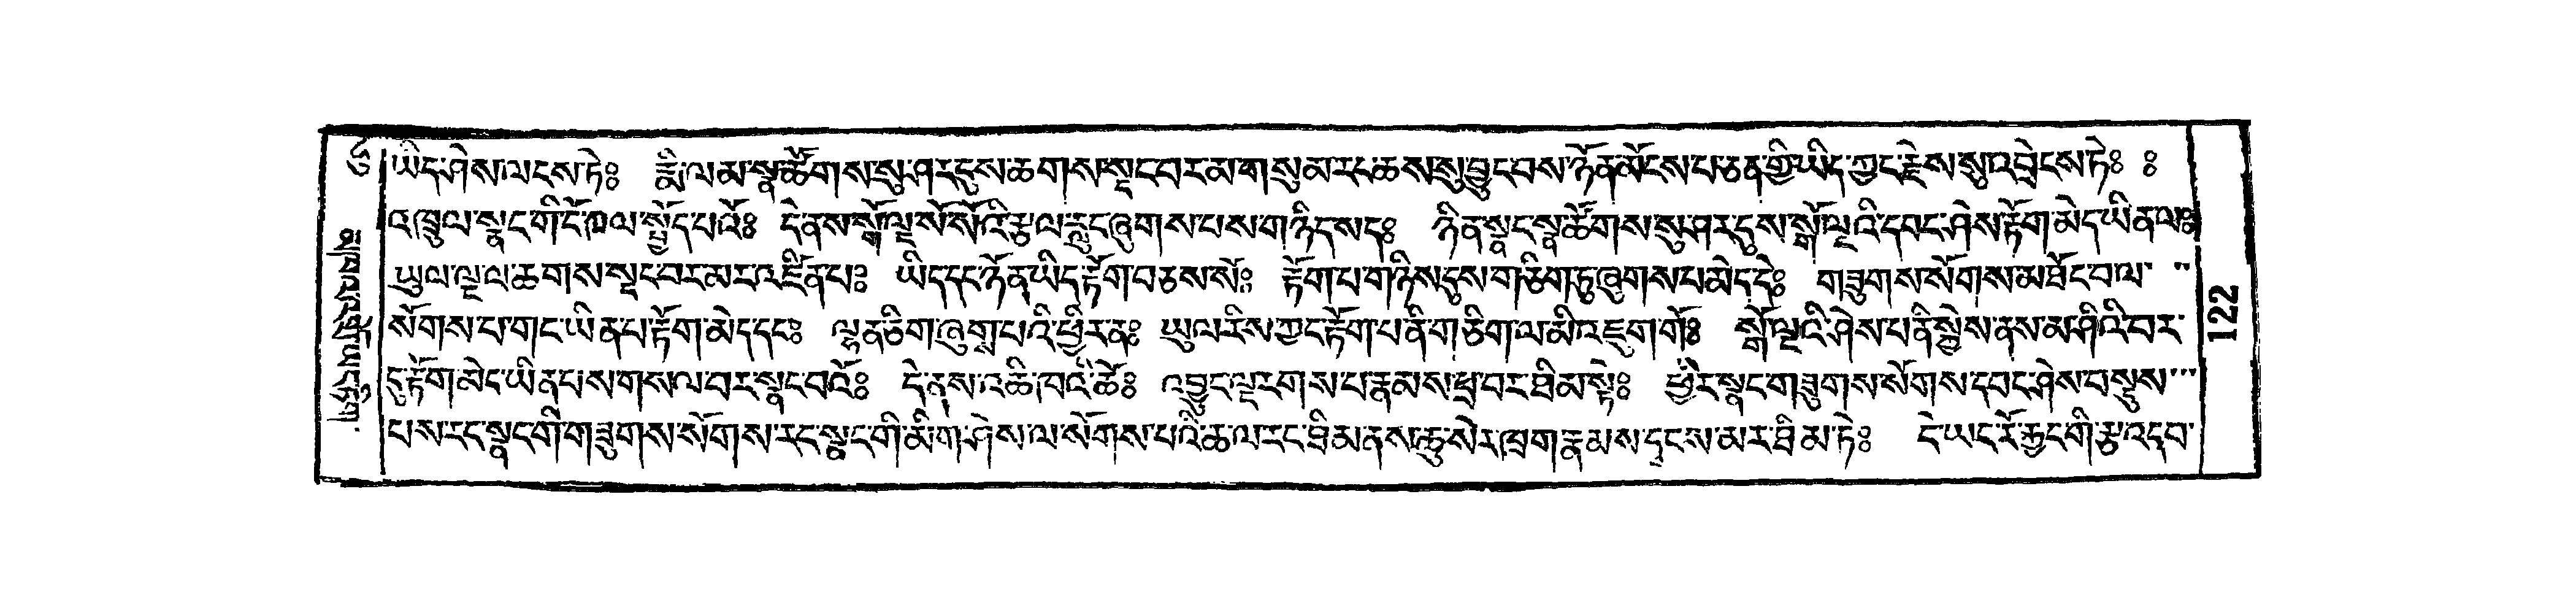 ཡིད་ཤེས་ལངས་ཏེ༔ རྨི་ལམ་སྣ་ཚོགས་སུ་ཤར་དུས་ཆགས་སྡང་བར་མ་གསུམ་རང་ཆས་སུ་བྱུང་བས་ཉོན་མོངས་པ་ཅན་གྱི་ཡིད་ཀྱང་རྗེས་སུ་འབྲེངས་ཏེ༔ ༔
འཁྲུལ་སྣང་གི་ངོ་ལ་སྤྱོད་པའོ༔ དེ་ནས་སྒོ་ལྔ་སོ་སོའི་རྩལ་རླུང་ཞུགས་པས་གཉིད་སད༔ ཉིན་སྣང་སྣ་ཚོགས་སུ་ཤར་དུས་སྒོ་ལྔའི་དབང་ཤེས་རྟོག་མེད་ཡིན་ལ༔
ཡུལ་ལྔ་ལ་ཆགས་སྡང་བར་མར་འཛིན་པ༔ ཡིད་དང་ཉོན་ཡིད་རྟོག་བཅས་སོ༔ རྟོག་པ་གཉིས་དུས་གཅིག་ཏུ་ཞུགས་པ་མེད་དེ༔ གཟུགས་སོགས་མཐོང་བ་ལ་
སོགས་པ་གང་ཡིན་པ་རྟོག་མེད་དང༔ ལྷན་ཅིག་ཞུགས་པའི་ཕྱིར་ན༔ ཡུལ་རིས་ཀྱང་རྟོག་པ་ནི་གཅིག་ལ་མི་འཇུག་གོ༔ སྒོ་ལྔའི་ཤེས་པ་ནི་སྐྱེས་ནས་མ་ཤིའི་བར་
དུ་རྟོག་མེད་ཡིན་པས་གསལ་བར་སྣང་བའོ༔ དེ་ནས་འཆི་བའི་ཚེ༔ འབྱུང་ལྔ་རགས་པ་རྣམས་ཕྲ་བར་ཐིམ་སྟེ༔ ཕྱིར་སྣང་གཟུགས་སོགས་དབང་ཤེས་བསྡུས་
པས་རང་སྣང་གི་གཟུགས་སོགས་རང་སྣང་གི་མིག་ཤེས་ལ་སོགས་པའི་ཆ་ལ་རང་ཐིམ་ནས་ཆུ་སེར་ཁྲག་རྣམས་དྭངས་མར་ཐིམ་ཏེ༔ དེ་ཡང་རོ་རྐྱང་གི་རྩ་འདབ་